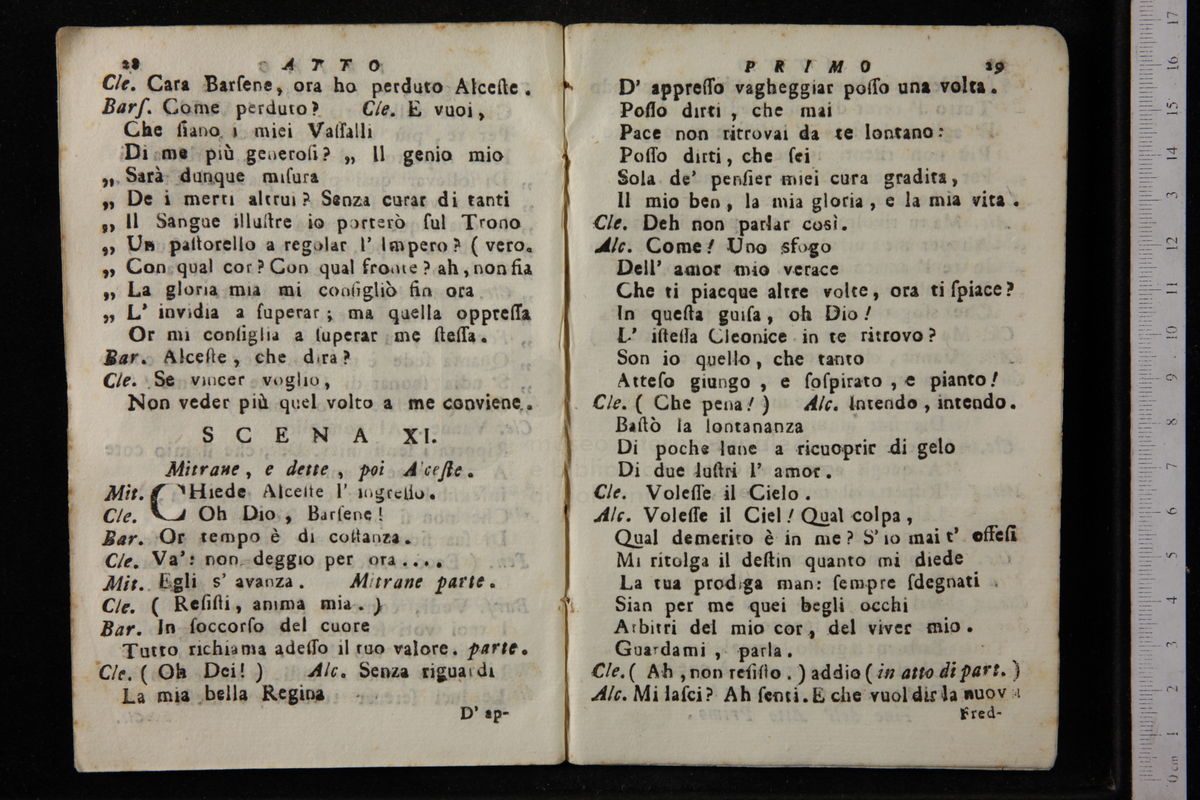 28 ATTO
Cle. Cara Barſene, ora ho perduto Alceſte.
Barſ. Come perduto? Cle. E vuoi,
Che ſiano i miei Vaſſalli
Di me più generoſi? „ Il genio mio
„ Sarà dunque miſura
„ De i merti altrui? Senza curar di tanti
„ Il Sangue illuſtre io porterò ſul Trono
„ Un paſtorello a regolar l' Impero? (vero.
„ Con qual cor? Con qual fronte? ah, non fia
„ La gloria mia mi conſigliò fin ora
„ L' invidia a ſuperar; ma quella oppreſſa
Or mi conſiglia a ſuperar me ſteſſa.
Bar. Alceſte, che dirà?
Cle. Se vincer voglio,
Non veder più quel volto a me conviene.
SCENA XI.
Mitrane, e dette, poi Alceſte.
Mit. CHiede Alceſte l' ingreſſo.
Cle. Oh Dio, Barſene!
Bar. Or tempo è di coſtanza.
Cle. Va': non deggio per ora....
Mit. Egli s' avanza. Mitrane parte.
Cle. (Reſiſti, anima mia.)
Bar. In ſoccorſo del cuore
Tutto richiama adeſſo il tuo valore. parte.
Cle. (Oh Dei!) Alc. Senza riguardi
La mia bella Regina
D' ap-
PRIMO 29
D' appreſſo vagheggiar poſſo una volta.
Poſſo dirti, che mai
Pace non ritrovai da te lontano:
Poſſo dirti, che ſei
Sola de' penſier miei cura gradita,
Il mio ben, la mia gloria, e la mia vita.
Cle. Deh non parlar così.
Alc. Come! Uno sfogo
Dell' amor mio verace
Che ti piacque altre volte, ora ti ſpiace?
In queſta guiſa, oh Dio!
L' iſteſſa Cleonice in te ritrovo?
Son io quello, che tanto
Atteſo giungo, e ſoſpirato, e pianto!
Cle. (Che pena!) Alc. Intendo, intendo.
Baſtò la lontananza
Di poche lune a ricuoprir di gelo
Di due luſtri l' amor.
Cle. Voleſſe il Cielo.
Alc. Voleſſe il Ciel! Qual colpa,
Qual demerito è in me? S' io mai t' offeſi
Mi ritolga il deſtin quanto mi diede
La tua prodiga man: ſempre ſdegnati
Sian per me quei begli occhi
Arbitri del mio cor, del viver mio.
Guardami, parla.
Cle. (Ah, non reſiſto.) addio (in atto di part.)
Alc. Mi laſci? Ah ſenti. E che vuol dir la nuova
Fred-